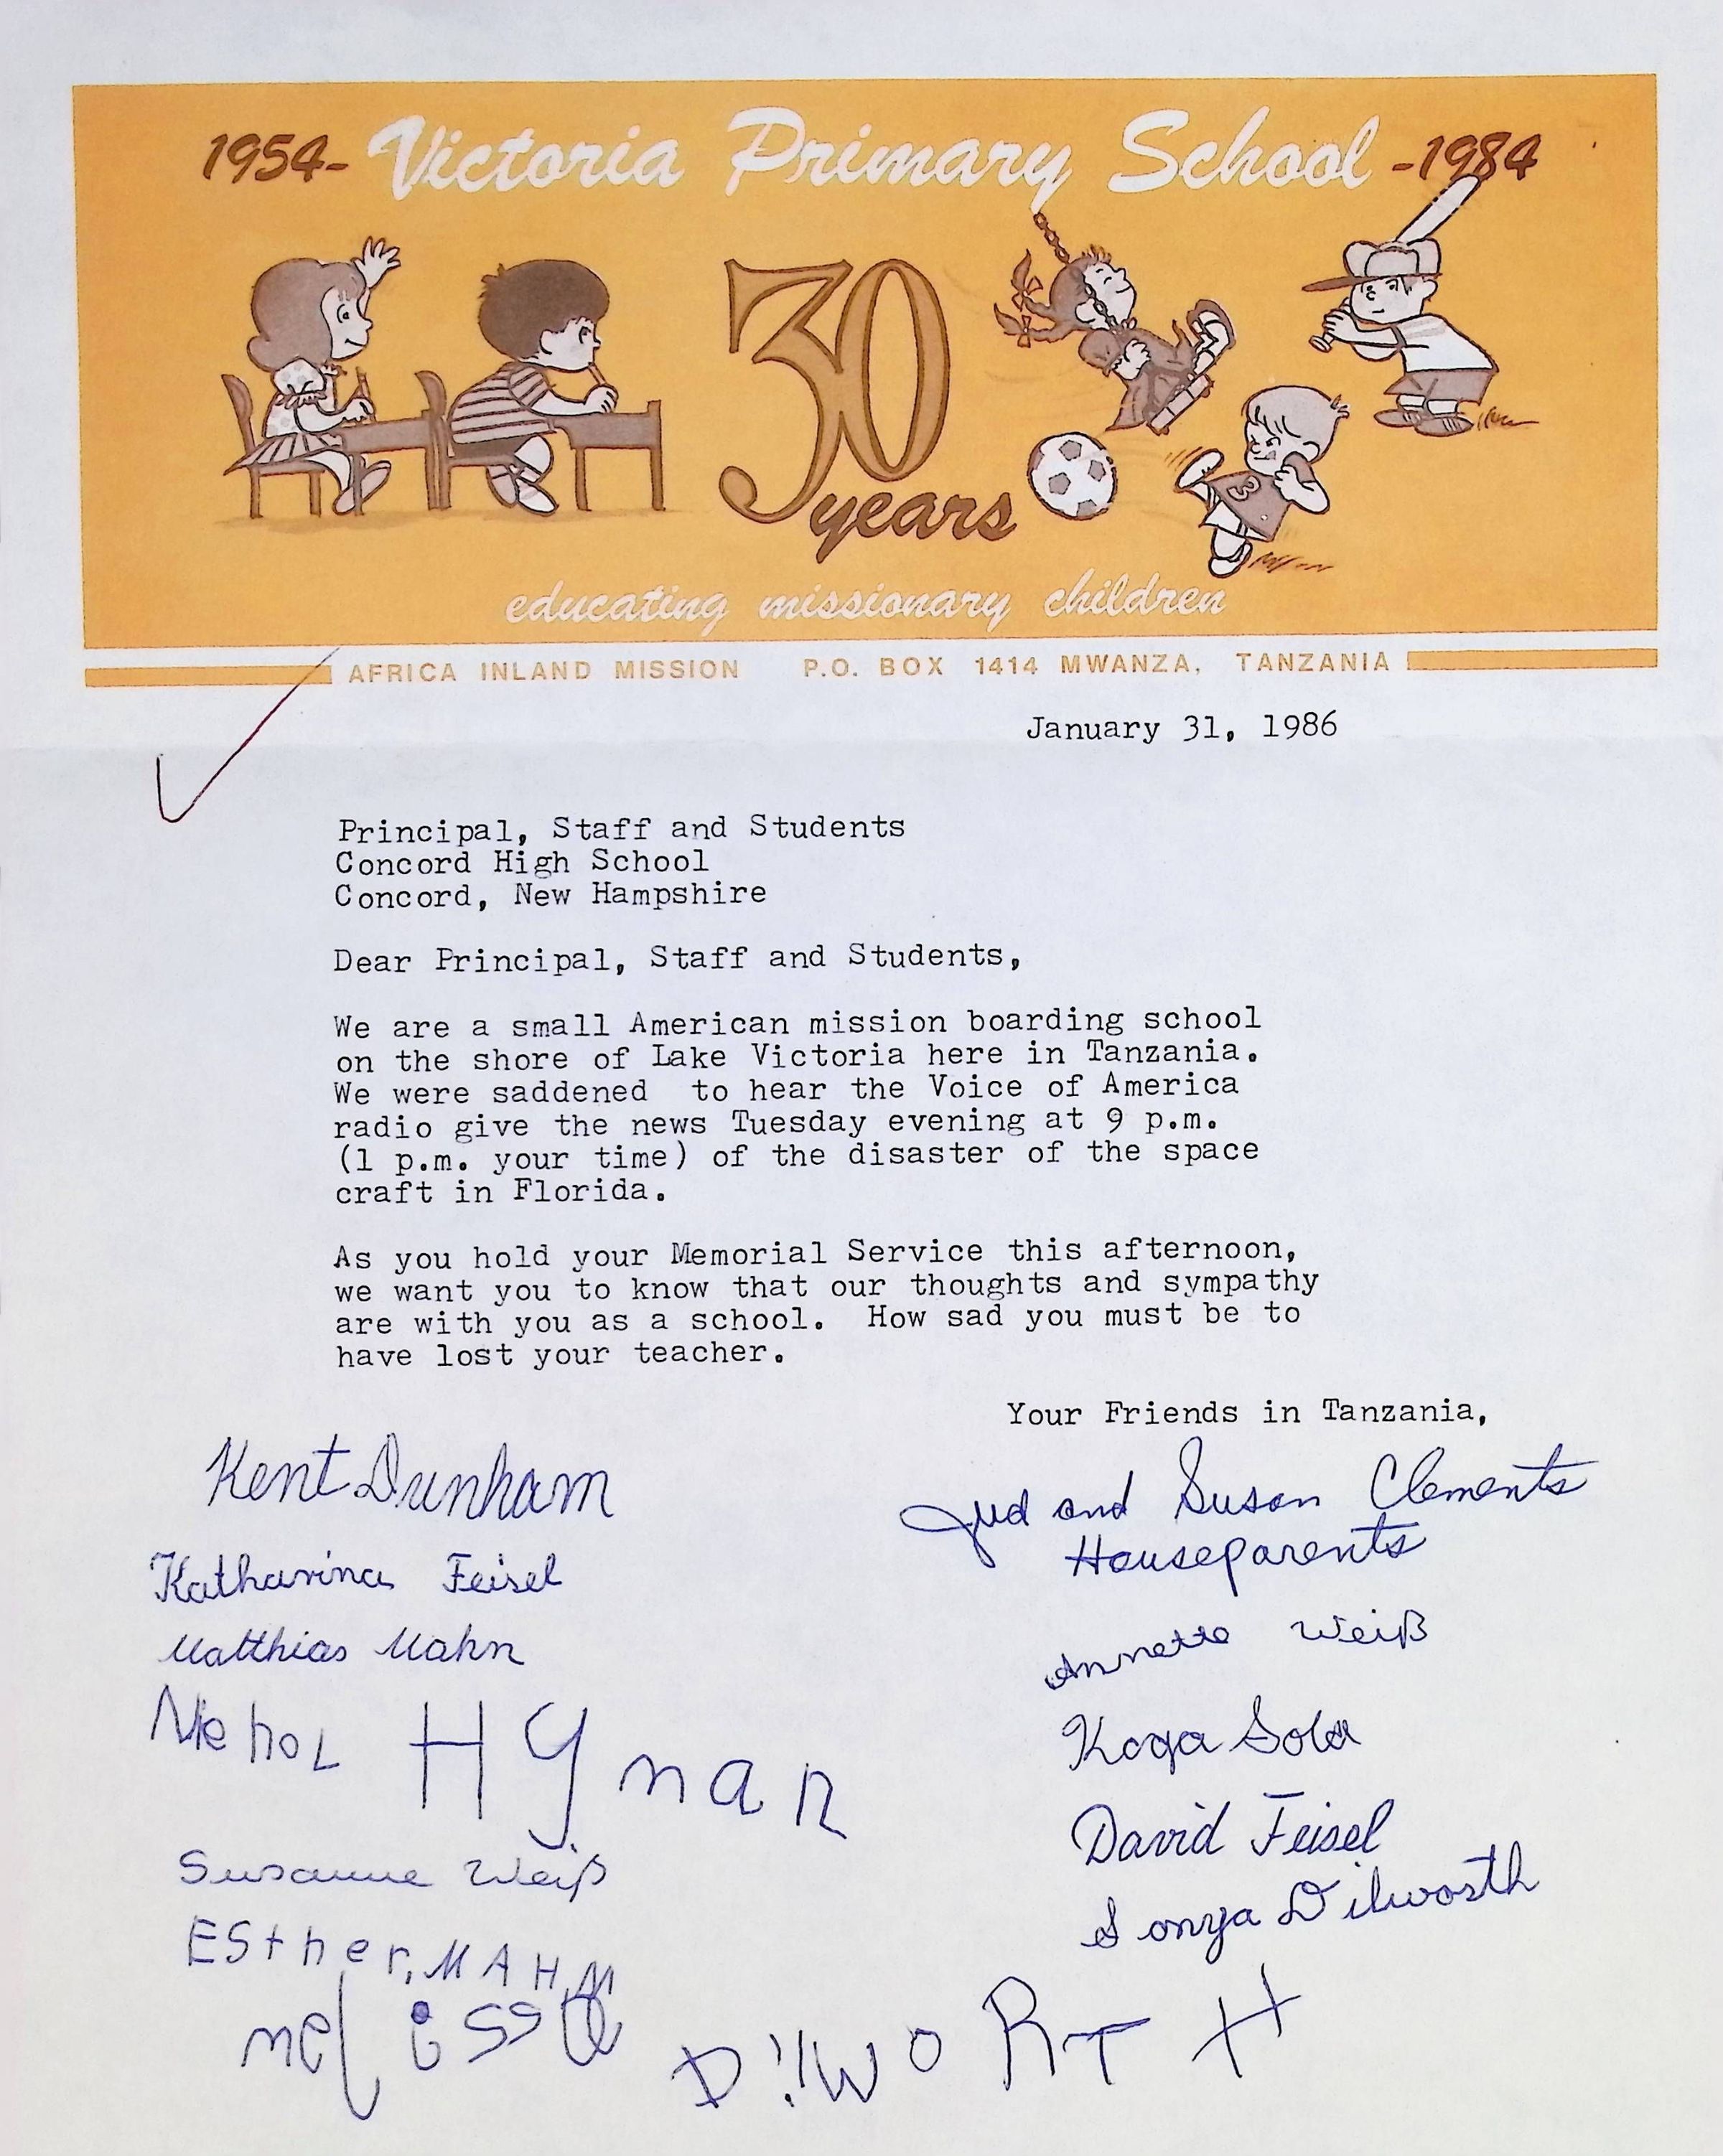 1954- Victoria Primary School -1984
30
years
3
educating missionary children
AFRICA INLAND MISSION P.O. BOX 1414 MWANZA, TANZANIA
January 31, 1986
Principal, Staff and Students
Concord High School
Concord, New Hampshire
Dear Principal, Staff and Students,
We are a small American mission boarding school
on the shore of Lake Victoria here in Tanzania.
We were saddened to hear the Voice of America
radio give the news Tuesday evening at 9 p.m.
(1 p.m. your time) of the disaster of the space
craft in Florida.
As you hold your Memorial Service this afternoon,
we want you to know that our thoughts and sympathy
are with you as a school. How sad you must be to
have lost your teacher.
Your Friends in Tanzania,
Jud and Susan Clements
Houseparents
Annette Weiß
Koga Sola
David Feisel
Sonya Dilworth
Kent Dunham
Katharina Feisel
Matthias Mahn
Hynan
Susanne Weiß
Esther, MAHN
melissa DilwoRTH